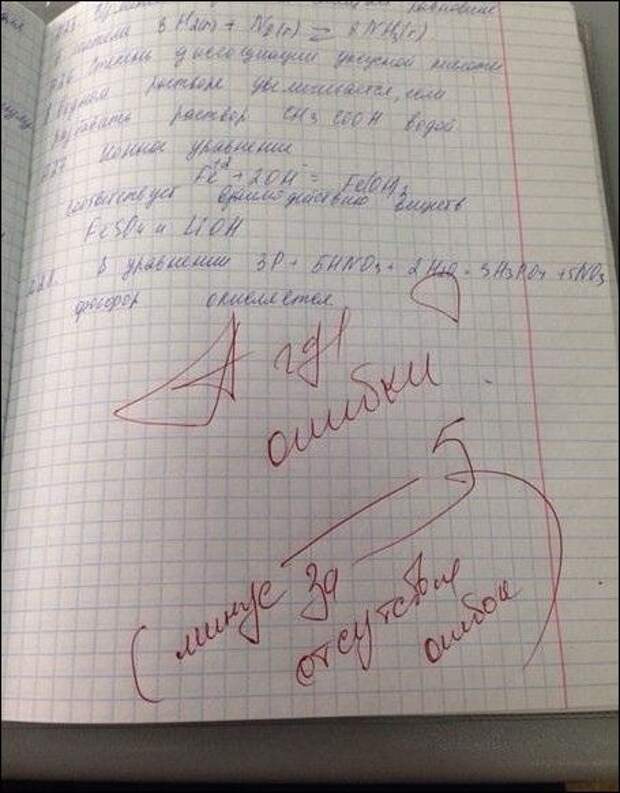 равновесие
системы 3 H₂(г) + N₂(г) ⇄ 2NH₃(г)
226 Степень диссоциации уксусной кислоты
в водном растворе увеличивается, если
разбавить раствор CH₃COOH водой
227 Ионное уравнение
Fe⁺² + 2OH⁻ = Fe(OH)₂
соответствует взаимодействию веществ
FeSO₄ и LiOH
228. В уравнении 3P + 5HNO₃ + 2H₂O = 3H₃PO₄ + 5NO
фосфор окисляется
А где
ошибки
5
(минус за
отсутствие
ошибок)